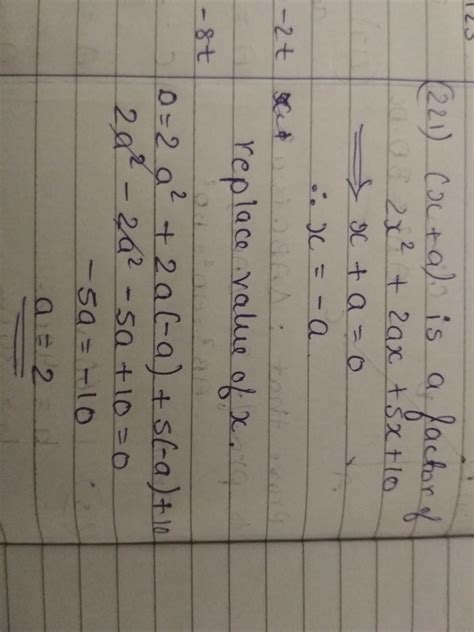 123
(221) (x+a) is a factor of
2x² + 2ax + 5x + 10
⟹ x + a = 0
∴ x = -a
-2t
replace value of x,
-8t
0 = 2 a² + 2a(-a) + 5(-a) + 10
2a² - 2a² - 5a + 10 = 0
-5a = -10
a = 2